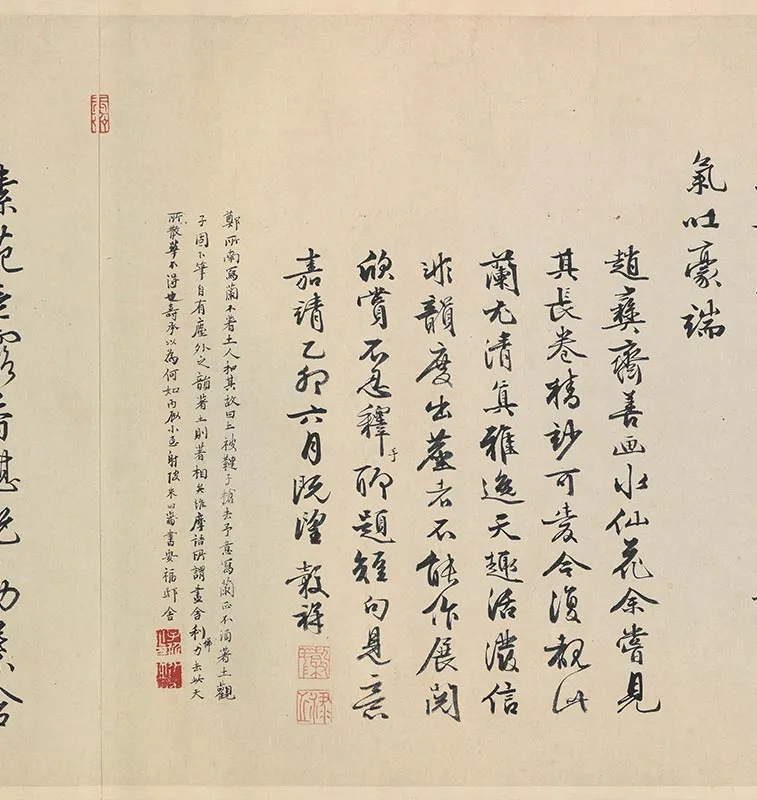 氣吐豪端
趙彝齋善画水仙花余嘗見
其長卷精妙可愛今復覩此
蘭尤清真雅逸天趣活潑信
非韻度出塵者不能作展閱
欣賞不忍釋手聊題短句是意
嘉靖乙卯六月既望 穀祥
鄭所南寫蘭不著土人扣其故曰土被韃子搶去予意寫蘭正不須著土觀
子固下筆自有塵外之韻著土則著相矣維摩詰所謂盡舍利弗力去此天
所散華不得也壽承以為何如射陂朱曰藩書安福邸舍